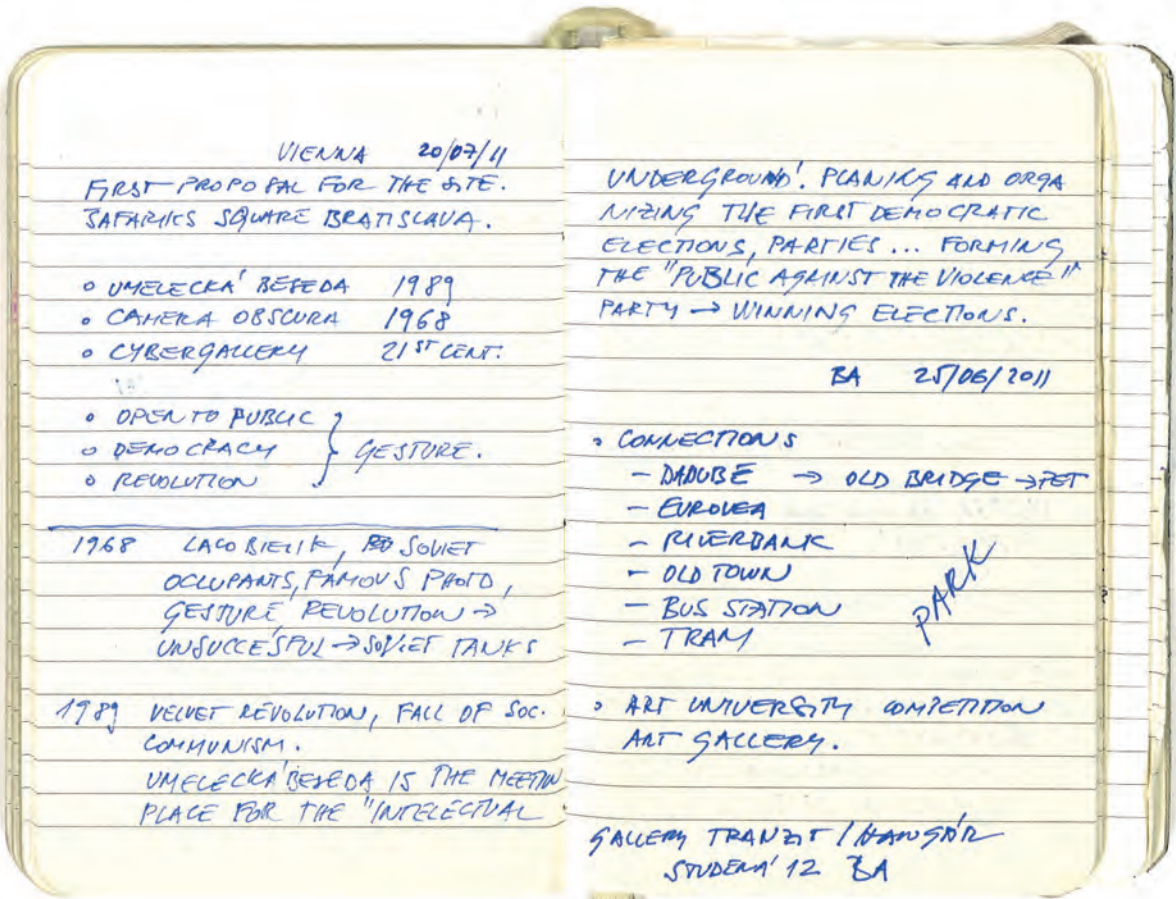 VIENNA 20/07/11
FIRST PROPOSAL FOR THE SITE.
SAFARIKS SQUARE BRATISLAVA.
• UMELECKÁ BESEDA 1989
• CAMERA OBSCURA 1968
• CYBERGALLERY 21ST CENT.
• OPEN TO PUBLIC
• DEMOCRACY } GESTURE.
• REVOLUTION
1968 LACO BIELIK, SOVIET
OCCUPANTS, FAMOUS PHOTO,
GESTURE, REVOLUTION →
UNSUCCESFUL → SOVIET TANKS
1989 VELVET REVOLUTION, FALL OF SOC.
COMMUNISM.
UMELECKÁ BESEDA IS THE MEETIN
PLACE FOR THE "INTELECTUAL
UNDERGROUND'. PLANING AND ORGA
NIZING THE FIRST DEMOCRATIC
ELECTIONS, PARTIES... FORMING
THE "PUBLIC AGAINST THE VIOLENCE"
PARTY → WINNING ELECTIONS.
BA 25/06/2011
• CONNECTIONS
– DADUBE → OLD BRIDGE → PET
– EUROVEA
– RIVERBANK
– OLD TOWN
– BUS STATION
– TRAM
PARK
• ART UNIVERSITY COMPETITION
ART GALLERY.
GALLERY TRANZIT / HANGÁR
STUDENÁ 12 BA